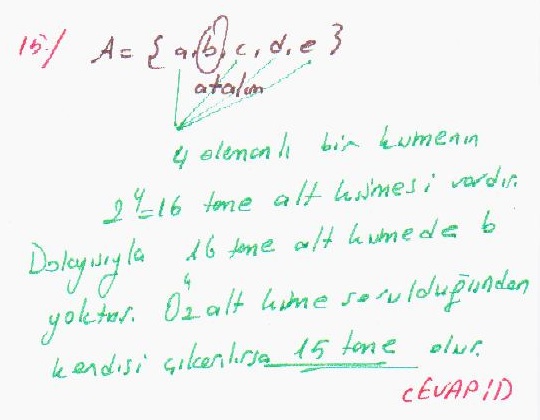 15-/ A = { a, b, c, d, e }
atalım
4 elemanlı bir kümenin
2^4=16 tane alt kümesi vardır.
Dolayısıyla 16 tane alt kümede b
yoktur. Öz alt küme sorulduğundan
kendisi çıkarılırsa 15 tane olur.
CEVAP|D